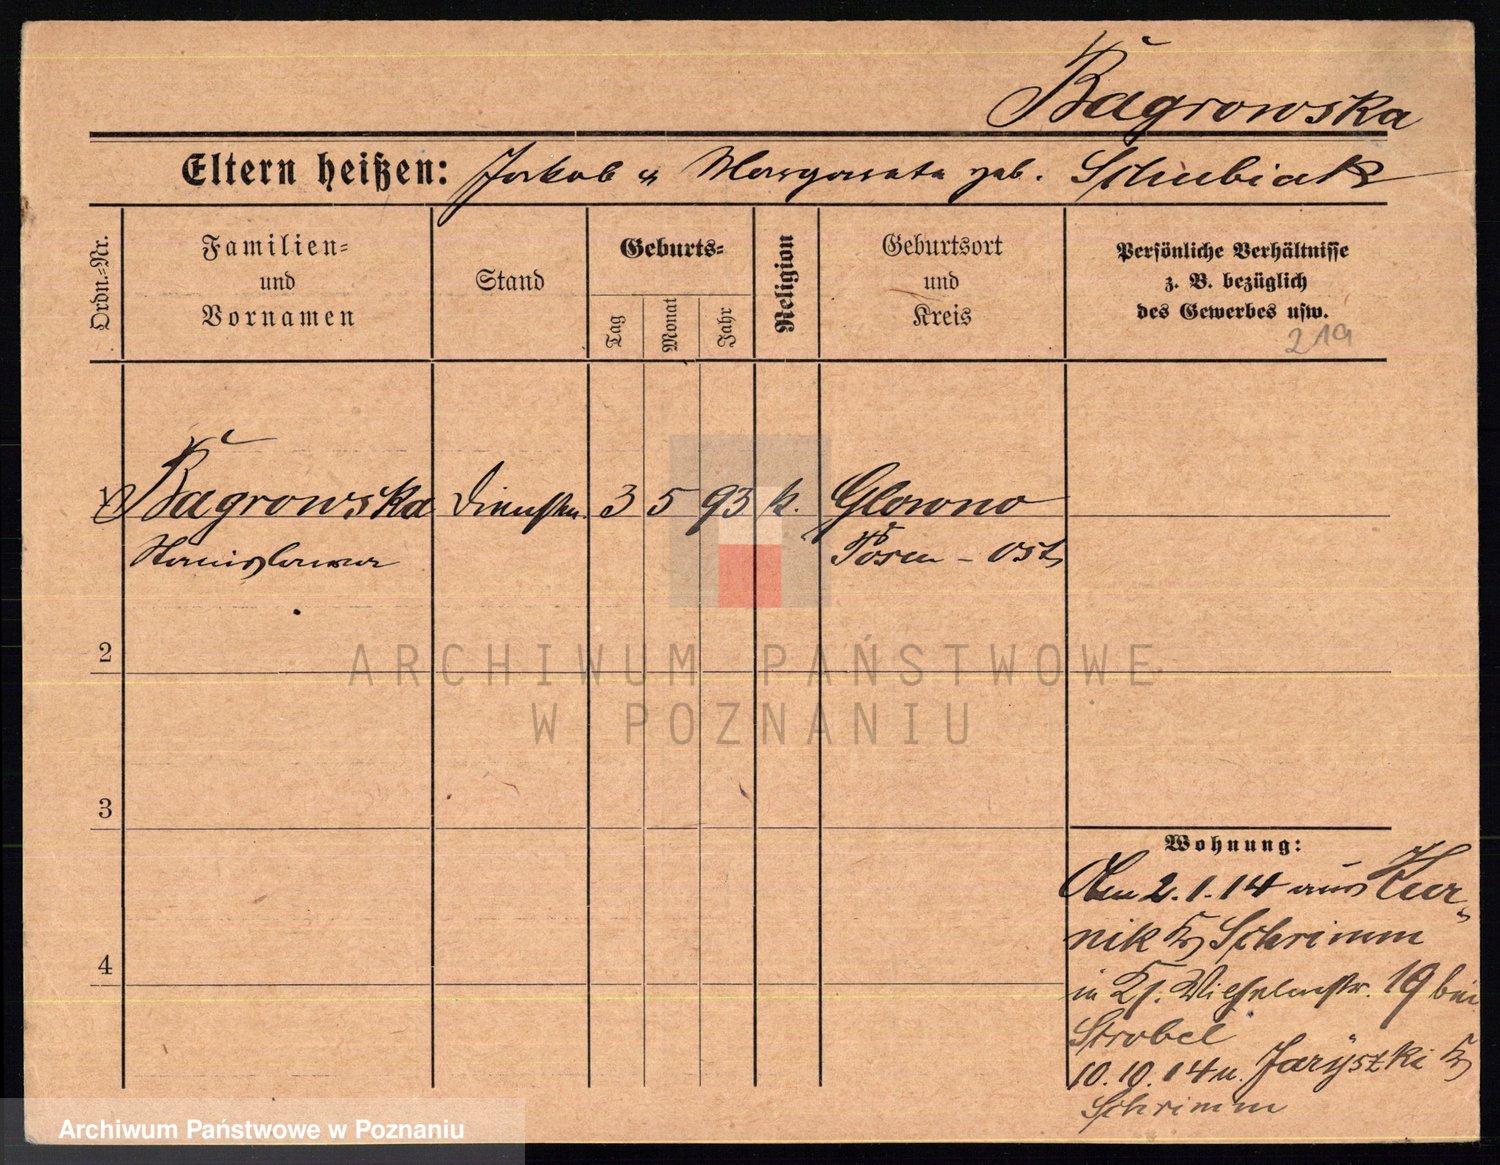 Bagrowska
Eltern heißen: Jakob u Margarata geb. Schubiak
Ordn.-Nr.
Familien-
und
Vornamen
Stand
Geburts-
Tag
Monat
Jahr
Religion
Geburtsort
und
Kreis
Persönliche Verhältnisse
z. B. bezüglich
des Gewerbes usw.
219
1 Bagrowska Dienstm. 3 5 93 k. Glowno
Stanislawa Posen - Ost
2
3
4
Wohnung:
Am 2.1.14 aus Kur-
nik Kr Schrimm
in Wilhelmstr. 19 bei
Strobel
10.10.14 n. Jaryszki Kr
Schrimm
ARCHIWUM PAŃSTWOWE
W POZNANIU
Archiwum Państwowe w Poznaniu